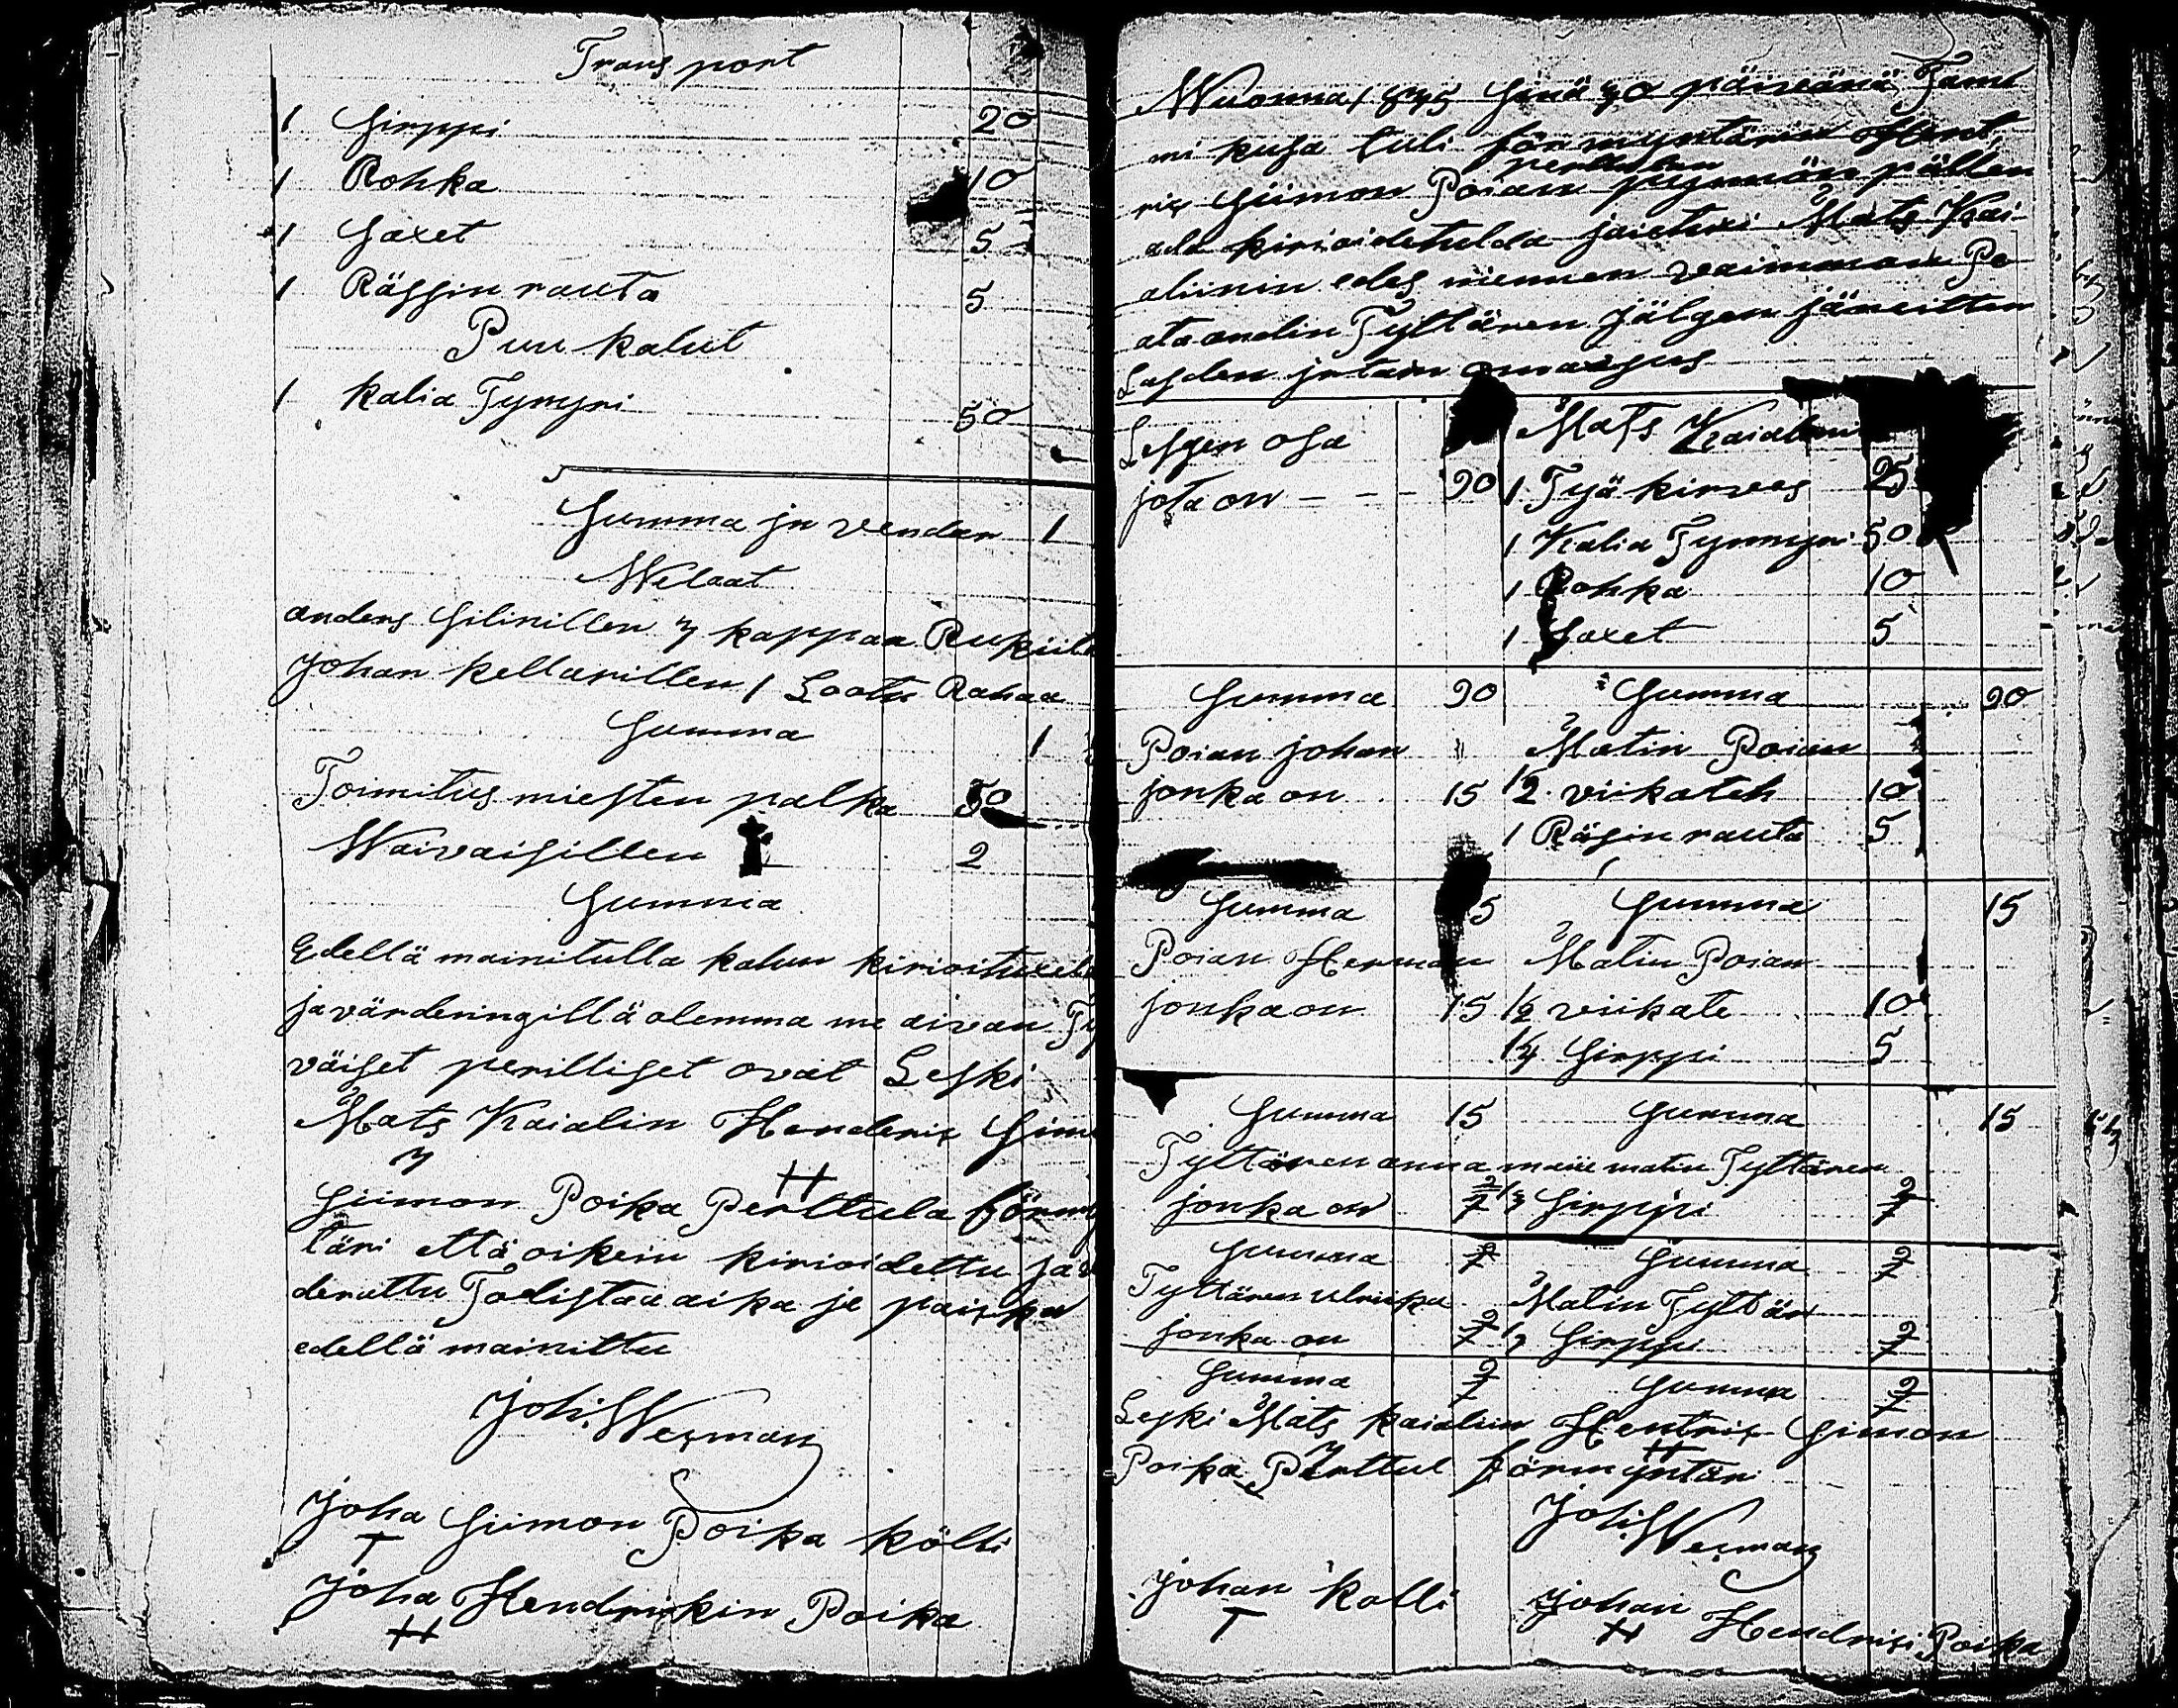 Transport
1 Sirppi 20
1 Rohka 10
1 Saxet 5
1 Rässin rauta 5
Puu kalut
1 kalia Tynnyri 50
Summa ja vendar 1
Welaat
anders Silinillen 3 kappaa Rukiit
Johan kellarillen 1 Lootu Rahaa
Summa 1
Toimitus miesten palka 50
Waivaisillen 2
Summa
Edellä mainitulla kalun kirioituxel
ja värderingillä olemma me aivan Ty
väiset perilliset ovat Leski
Mats Kaialin Henderix Sim
Siimon Poika Perttula förmy
täri että oikein kirioidettu ja
derattu Todistaa aika ja paixka
edellä mainittu
Joh: Wexman
Joha Siimon Poika kölli
Joha Hendrikin Poika
Wuonna 1845 Sinä 30 päiveänä Tami
mi kusa tuli förmyntärin Hent
perttulan
rix Siimon Poian pyynnön pällen
ala kirioidetulda jaetuxi Mats Kai
aliinin edes mennen vaimmon Po
ata andin Tyttären jälgen jäneitten
Lasden
Lesgen osa Mats Kaialin
jota on - - - 90 1 Tyä kirves 25
1 Kalia Tynnyri 50
1 Rohka 10
1 Saxet 5
Summa 90 Summa 90
Poian johan Matin Poian
jonka on 15 1/2 viikateh 10
1 Räsin rauta 5
Summa 15 Summa 15
Poian Herman Matin Poian
jonka on 15 1/2 viikate 10
1/4 Sirppi 5
Summa 15 Summa 15
Tyttären anna maie matin Tyttären
jonka on 1/3 Sirppi
Summa Summa
Tyttären ulrieka Matin Tyttär
jonka on Sirppi
Summa Summa
Leski Mats kaialin Hentrix Simon
Poika Perttul förmyntäri
Joh: Wexman
Johan Kolli Johan
Hendrixi Poika